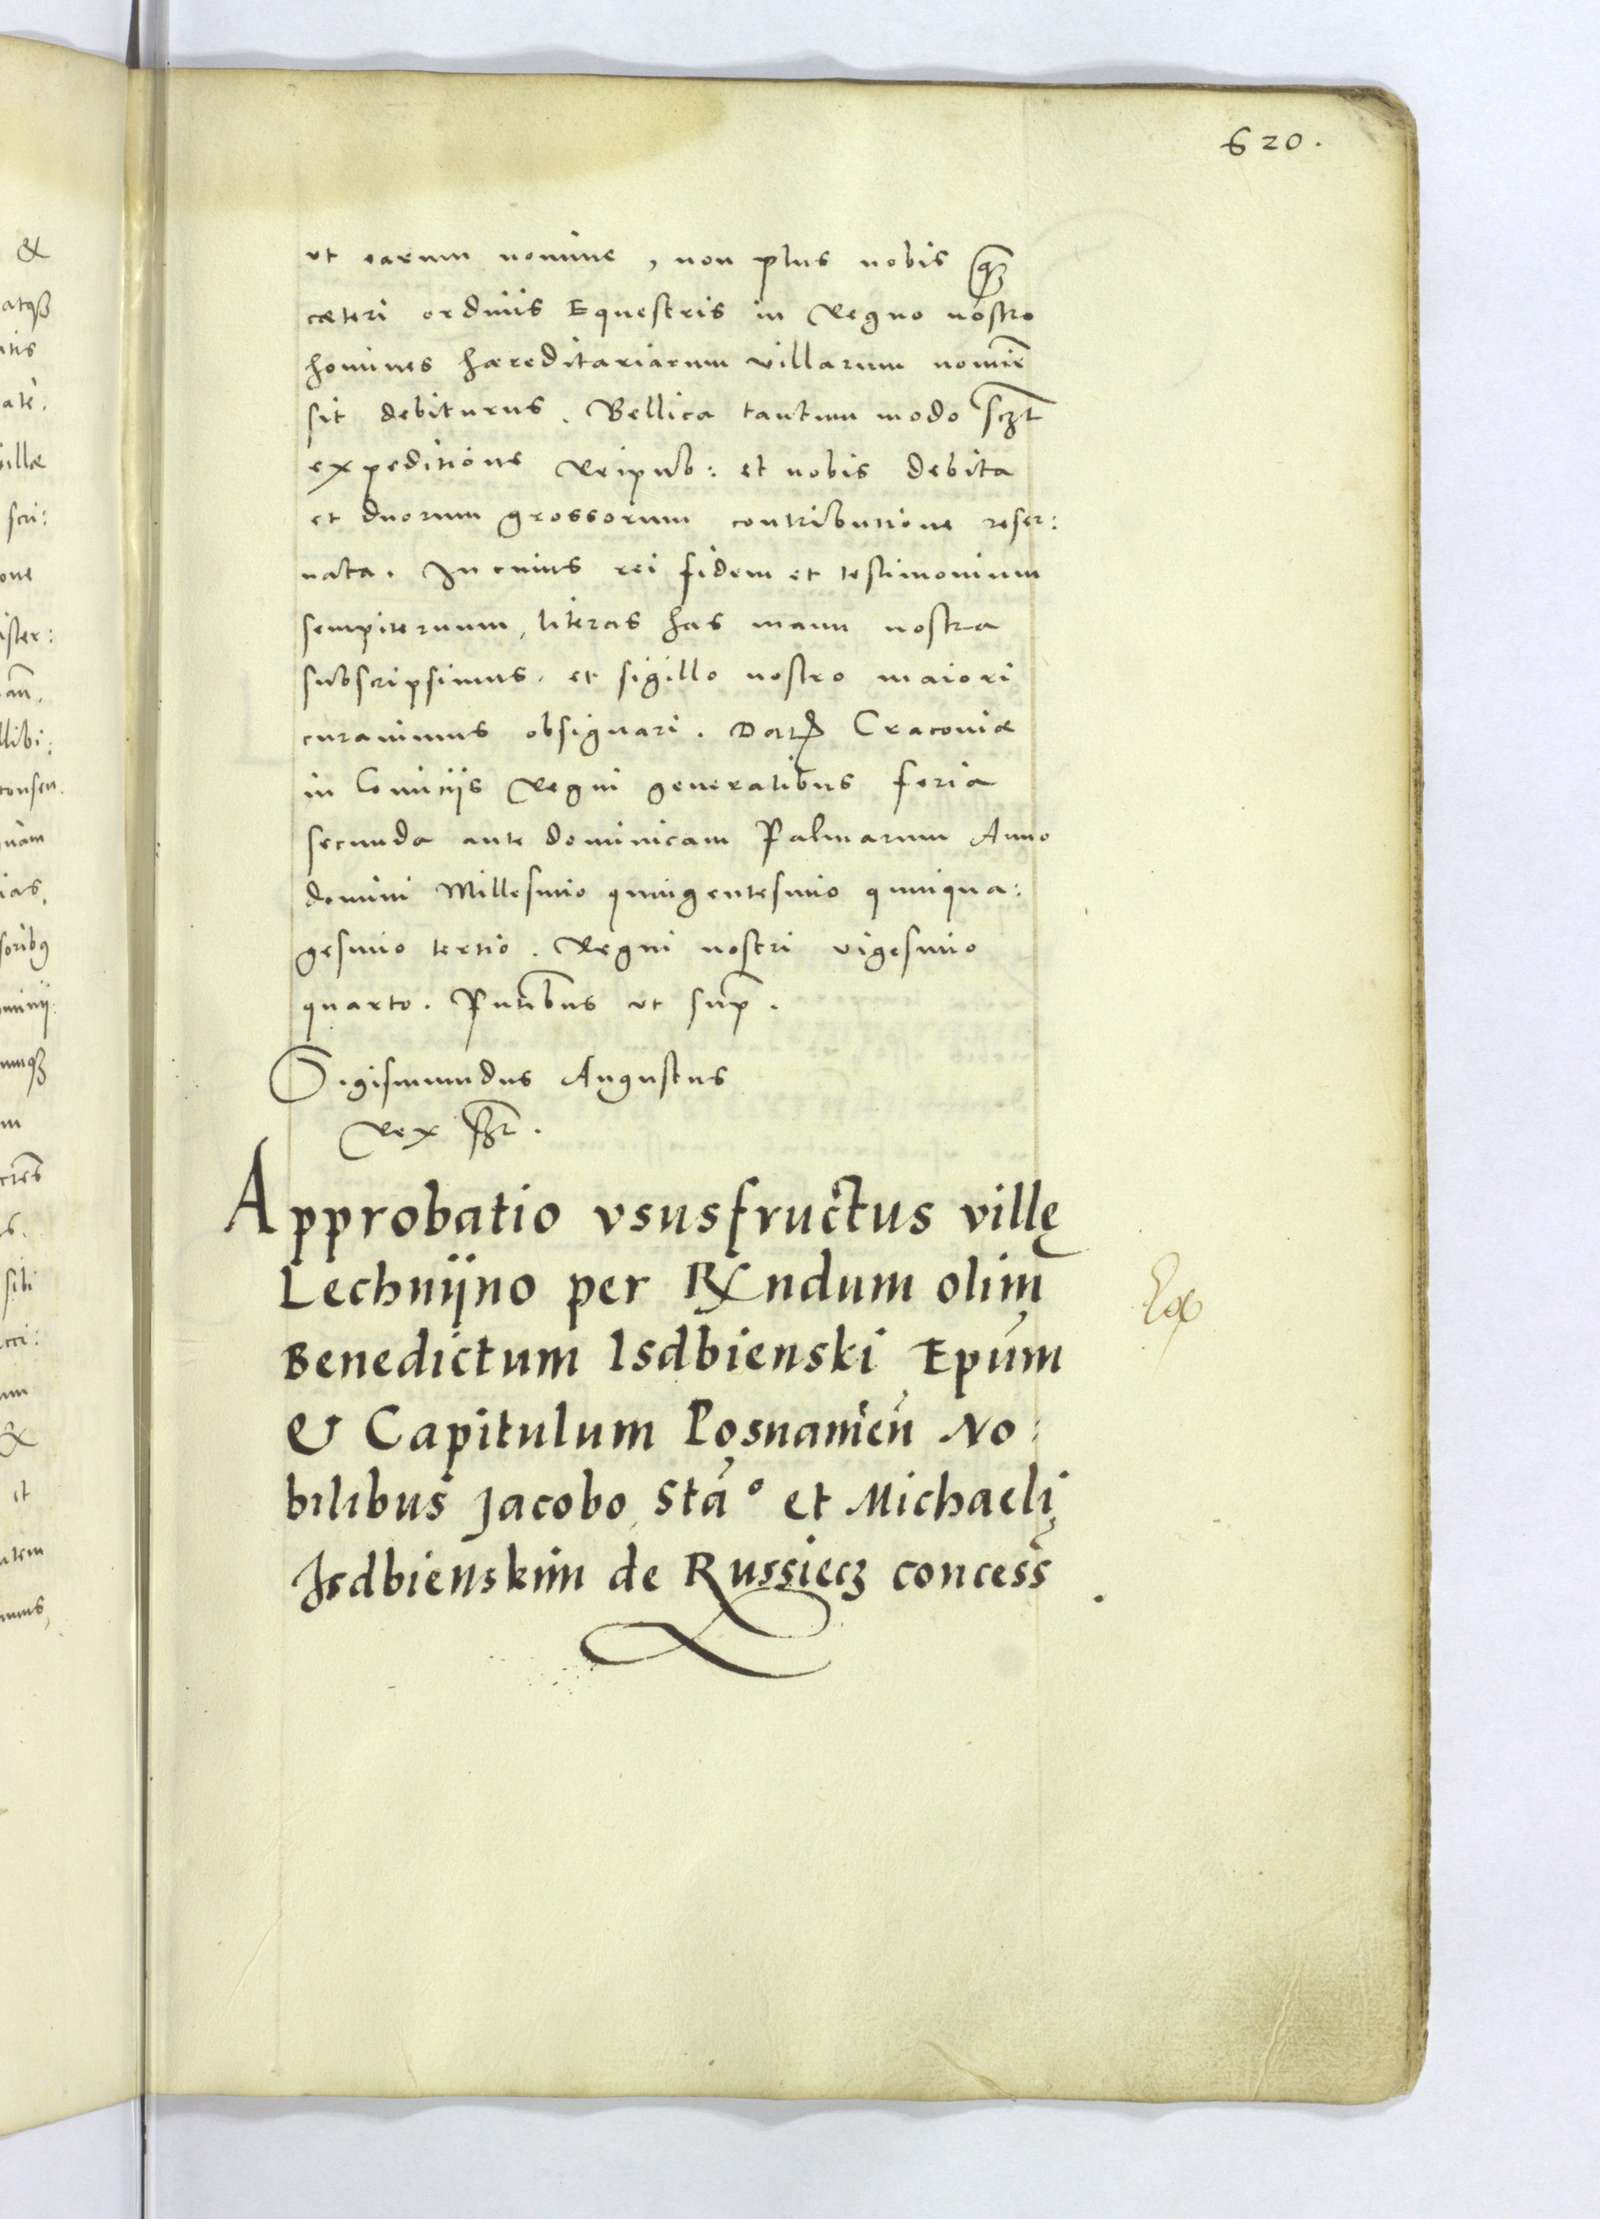 620.
vt earum nomine, non plus nobis q̃ꝫ
cæteri ordinis Equestris in Regno nostro
homines hæreditariarum villarum nomiẽ
sit debiturus. Bellica tantum modo scꝫt
expeditione Reipub: et nobis debita
et duorum grossorum contributione reser:
uata. In cuius rei fidem et testimonium
sempiternum, literas has manu nostra
subscripsimus. et sigillo nostro maiori
curauimus obsignari. Dat Cracouiæ
in Comicijs Regni generalibus feria
secunda ante dominicam Palmarum Anno
domini Millesimo quingentesimo quinqua:
gesimo tertio. Regni nostri vigesimo
quarto. Pñtibus vt sup̃.
Sigismundus Augustus
Rex sszt.
Approbatio vsusfructus villę
Lechnijno per Rndum olim
Benedictum Isdbienski Epum
& Capitulum Posnanien No:
bilibus Jacobo, Sta° et Michaeli
Isdbienskim de Russiecz concess̃.
&
atqꝫ
ate.
illæ
scri:
one
ister:
llibi:
consen.
uam
ias,
soribꝰ
sili
&
it
atem